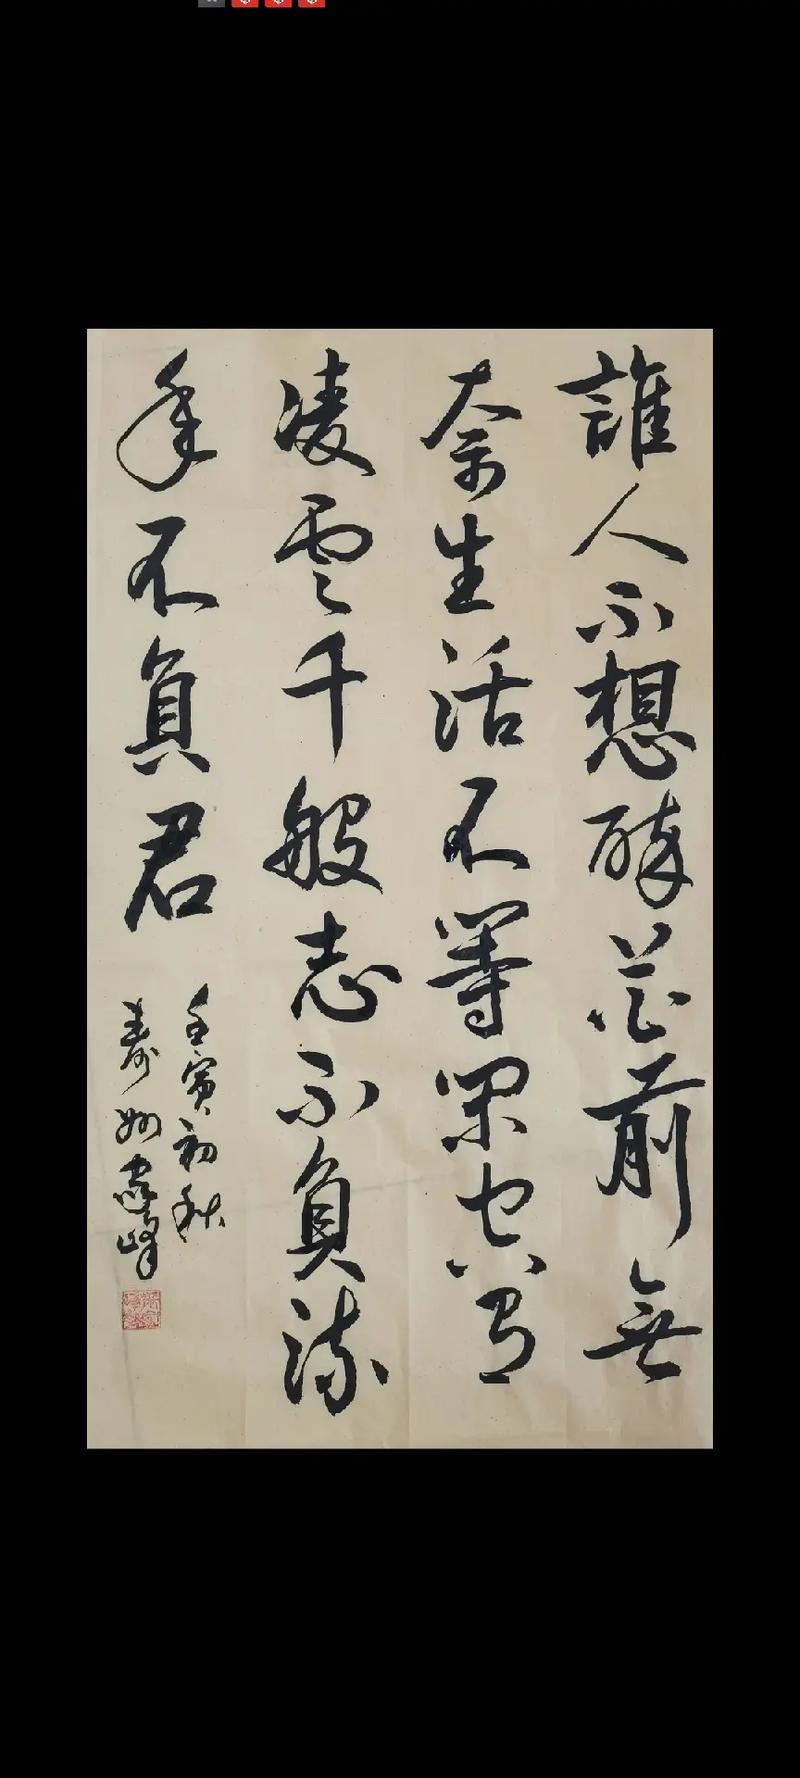 誰人不想醉花前無
奈生活不等閑空有
凌雲千般志不負流
年不負君
壬寅初秋
壽州建峰